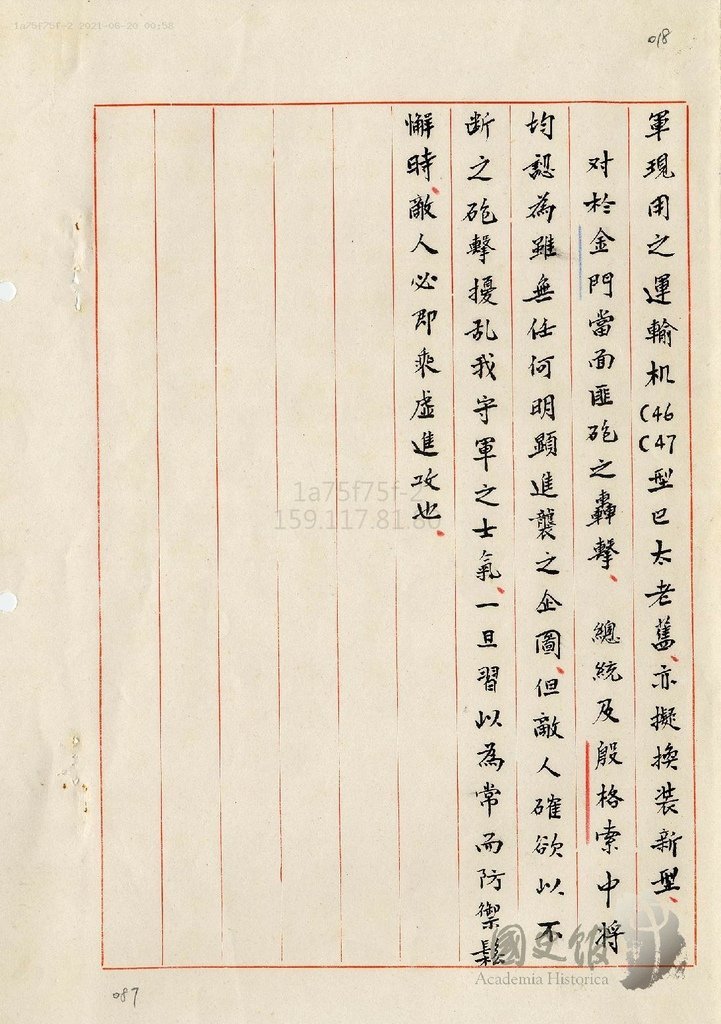 1a75f75f-2 2021-06-20 00:58
018
軍現用之運輸机C46C47型已太老舊、亦擬換装新型、
对於金門當面匪砲之轟擊、　總統及殷格索中将
均認為雖無任何明顯進襲之企圖、但敵人確欲以不
断之砲擊擾乱我守軍之士氣、一旦習以為常而防禦鬆
懈時、敵人必即乘虛進攻也、
1a75f75f-2
159.117.81.80
國史館
Academia Historica
087